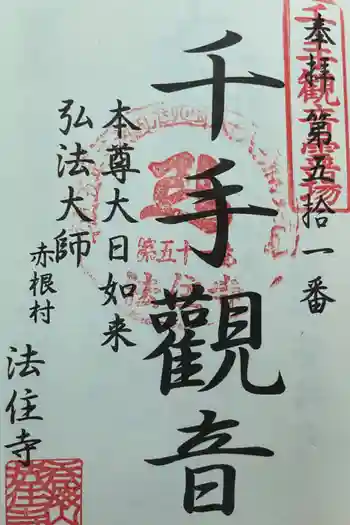 奉拝 第五拾一番
千手觀音靈場
千手觀音
本尊大日如来
弘法大師
赤根村
法住寺
第五十一番
法住寺